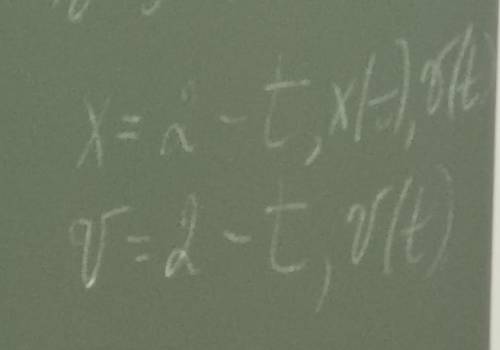 x = 2 - t, x(t), v(t)
v = 2 - t, v(t)